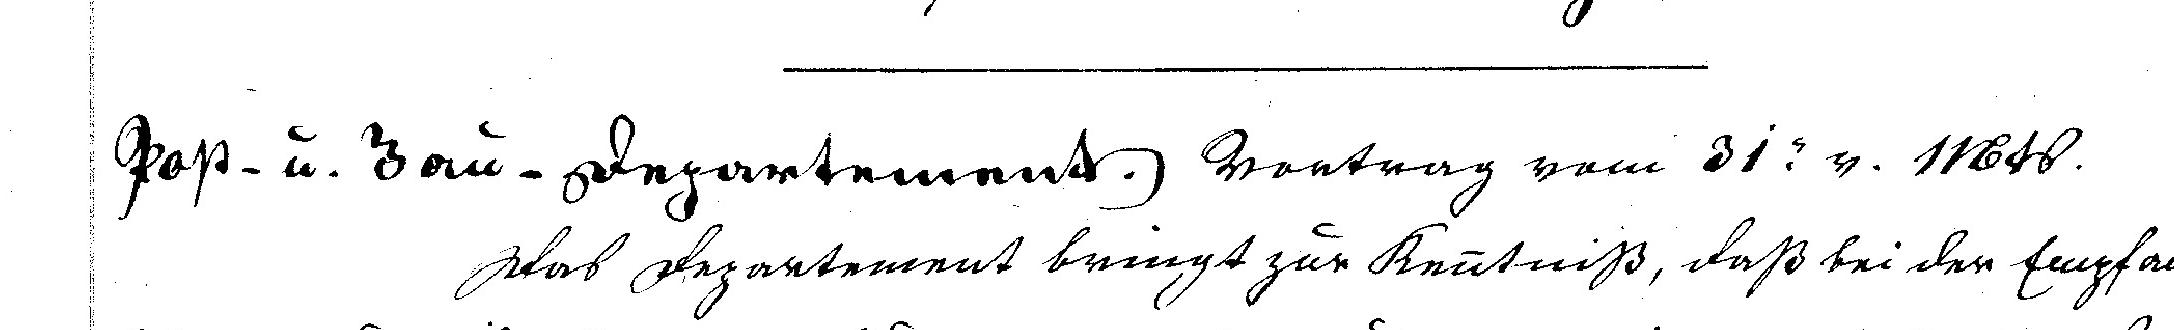 Post- u. Bau-Departement.) Vortrag vom 31. v. Mts.
Das Departement bringt zur Kenntniß, daß bei der